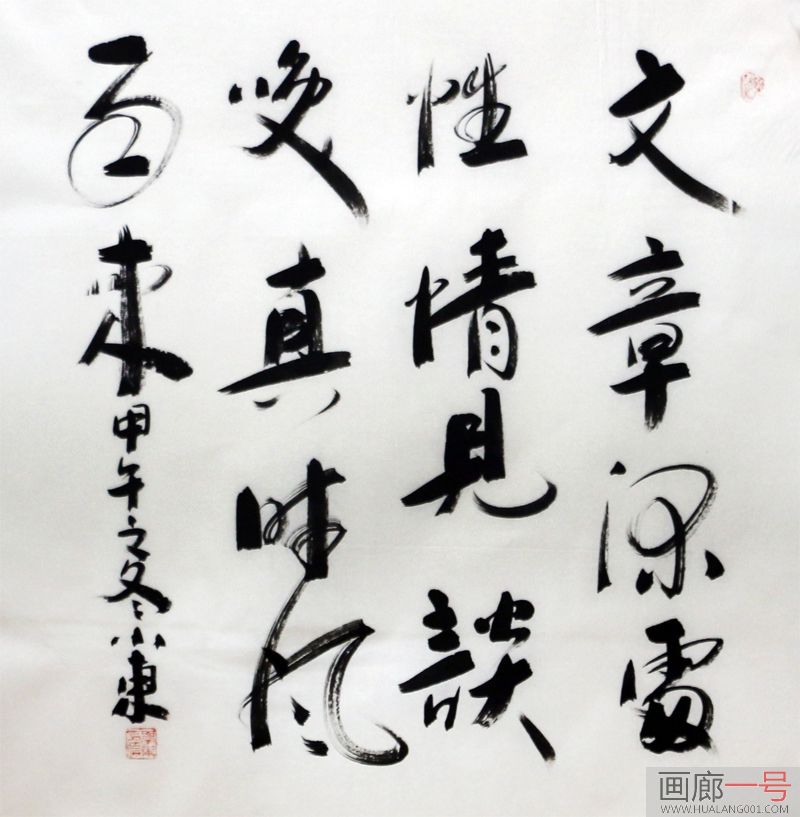 文章深處
性情見談
咲真時風
雨來
甲午之冬小東
画廊一号
WWW.HUALANG001.COM